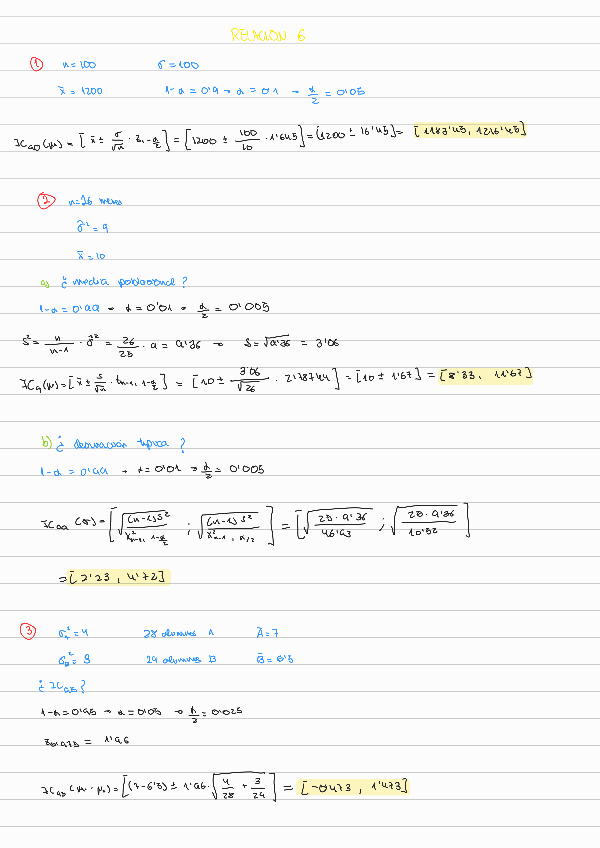 RELACIÓN 6
① n=100 σ=100
x̄ = 1200 1-α=0'9 → α=0'1 → α/2 = 0'05
IC90(μ) = [x̄ ± σ/√n · z1-α/2] = [1200 ± 100/10 · 1'645] = [1200 ± 16'45] = [1183'45, 1216'45]
② n=26 meses
σ̂² = 9
x̄ = 10
a) ¿media poblacional?
1-α = 0'99 → α = 0'01 → α/2 = 0'005
S² = n/n-1 · σ̂² = 26/25 · 9 = 9'36 → S = √9'36 = 3'06
IC9(μ) = [x̄ ± s/√n · tn-1, 1-α/2] = [10 ± 3'06/√26 · 2'78744] = [10 ± 1'67] = [8'33, 11'67]
b) ¿desviación típica?
1-α = 0'99 → α = 0'01 → α/2 = 0'005
IC99(σ) = [√((n-1)S²/χ²n-1, 1-α/2) ; √((n-1)S²/χ²n-1, α/2)] = [√(25·9'36/46'93) ; √(25·9'36/10'52)]
= [2'23, 4'72]
③ 28 alumnos A Ā = 7
29 alumnos B B̄ = 6'5
¿IC95?
1-α = 0'95 → α = 0'05 → α/2 = 0'025
z0'975 = 1'96
= [-0'473, 1'473]